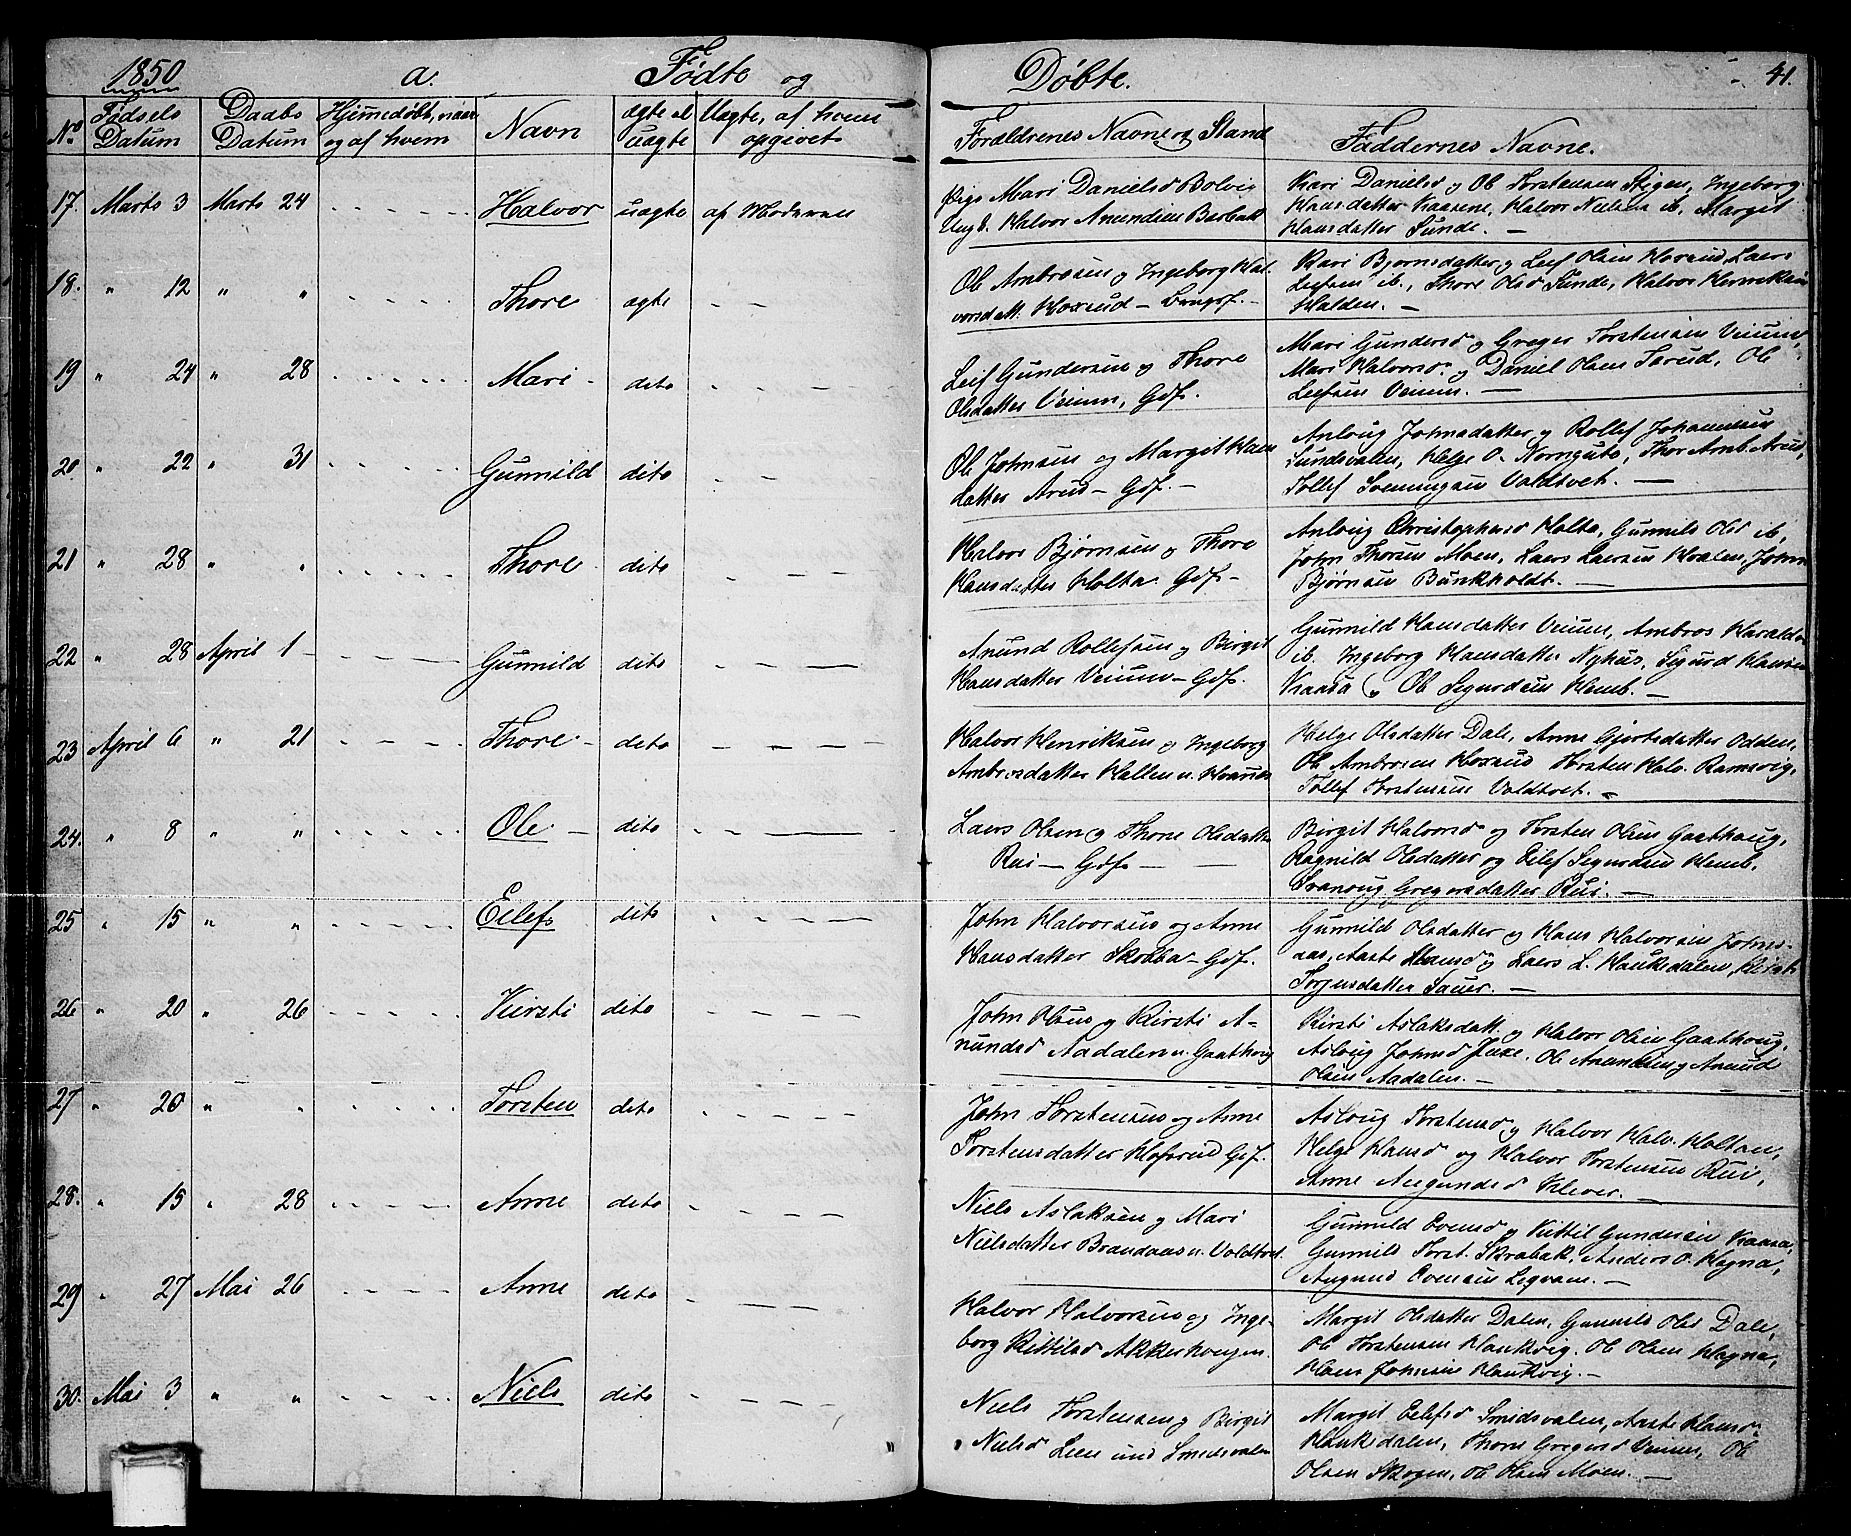 1850 a. Fødte og Døbte. 41.
No Fødsels Datum Daabs Datum Hjemmedøbt, naar og af hvem Navn ægte el uægte Uægte, af hvem opgivet Forældrenes Navne og Stand Faddernes Navne.
17. Marts 3 Marts 24 Halvor uægte af Moderen
Pige Mari Danielsd Bolvig
Ungk. Halvor Anundsen
Kari Danielsd og Ole Torstensen Stigen, Ingeborg
Hansdatter Kaasene, Halvor Nielsen ib, Margit
Hansdatter Sunde. —
18. " 12 " " Thore ægte
Ole Ambrosen og Ingeborg Hal-
vorsdatt. Hoxrud —
Kari Bjørnsdatter og Leif Olsen Hoxrud, Laers
Leifsen ib., Thore Olsd Sunde, Halvor Henriksen
Halden. —
19 " 24 " 28 Mari dito
Leif Gundersen og Thore
Olsdatter Veium, Gdf.
Mari Gundersd og Greger Torstensen Veium,
Mari Halvorsd og Daniel Olsen Tarud, Ole
Leifsen Veium. —
20. " 22 " 31 Gunnild dito
Ole Johnsen og Margit Hans
datter Arus — Gdf. —
Anloug Johnsdatter og Rollef Johannesen
Sundsvalen, Helge O. Norngute, Thor Amb. Arud,
Tollef Svenungsen Valdtvet. —
21 " 28 " " Thore dito
Halvor Bjørnsen og Thore
Hansdatter Holta Gdf —
Anloug Christophersd Holta, Gunnild Olsd ib,
John Thorsen Moen, Laers Laersen Hvalen, John
Bjørnsen Bunkholdt. —
22 " 28 April 1 Gunnild dito
Anund Rollefsen og Birgit
Hansdatter Veium — Gdf.
Gunnild Hansdatter Veium, Ambros Haralds
ib. Ingeborg Hansdatter Nyhus, Sigurd Hansen
Kaasa og Ole Sigurdsen Hemb. —
23 April 6 " 21 Thore dito
Halvor Henriksen og Ingeborg
Ambrosdatter Hallen u. Hoxrud
Helge Olsdatter Dale, Anne Gjertsdatter Odden,
Ole Ambrosen Hoxrud Torsten Halv. Ramsvig,
Tollef Torstensen Valdtvet. —
24. " 8 " " Ole dito
Laers Olsen og Thone Olsdatter
Rui — Gdf —
Birgit Halvorsd og Torsten Olsen Gaathoug,
Ragnild Olsdatter og Eilef Sigursdsen Hemb,
Svanoug Gregersdatter Rui. —
25 " 15 " " Eilef dito
John Halvorsen og Anne
Hansdatter Skoba — Gdf.
Gunnild Olsdatter og Hans Halvorsen Johns-
aas, Aaste Hansd og Laers L. Haukedalen,
Torjusdatter Sauer. —
26 " 20 " 26 Kirsti dito
John Olsen og Kirsti A-
nundsd Aadalen u. Gaathoug
Kirsti Aslaksdatt. og Halvor Olsen Gaathoug.
Asloug Johnsd Juxe. Ole Anundsen og Anund
Olsen Aadalen. —
27 " 20 " " Torsten dito
John Torstensen og Anne
Torstensdatter Hofsrud Gdf.
Asloug Torstensd og Halvor Halv. Holtan,
Helge Hansd og Halvor Torstensen Rui,
Anne Augundsd Klever. —
28. " 15 " 28 Anne dito
Niels Aslaksen og Mari
Nielsdatter Brandaas u. Valdtvet.
Gunnild Evensd og Kittil Gundersen Kaasa,
Gunnild Torst. Skrabak, Anders O. Høgna,
Augund Evensen Legvam. —
29 " 27 Mai 26 Anne dito
Halvor Halvorsen og Inge-
borg Kittilsd Akkerhougen.
Margit Olsdatter Dalen, Gunnild Olsd Dale,
Ole Torstensen Haukvig. Ole Olsen Høgna,
Hans Johnsen Haukvig. —
30. Mai 3 " " Niels dito
Niels Torstensen og Birgit
Nielsd Leen und Smedsvalen
Margit Eilefsd Smedsvalen, Aaste Hansd
Haukedalen, Thone Gregersd Veium, Ole
Olsen Skogen, Ole Olsen Moen. —